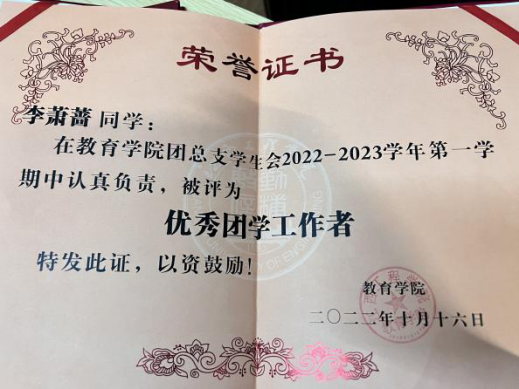 荣誉证书
李萧蔷 同学：
在教育学院团总支学生会2022-2023学年第一学
期中认真负责，被评为
优秀团学工作者
特发此证，以资鼓励！
教育学院
二〇二二年十月十六日